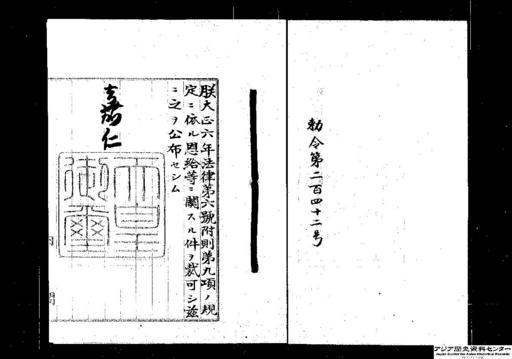 勅令第二百四十二号
朕大正六年法律第六號附則第九項ノ規
定ニ依ル恩給等ニ關スル件ヲ裁可シ茲
ニ之ヲ公布セシム
嘉仁
天皇
御璽
アジア歴史資料センター
Japan Center for Asian Historical Records